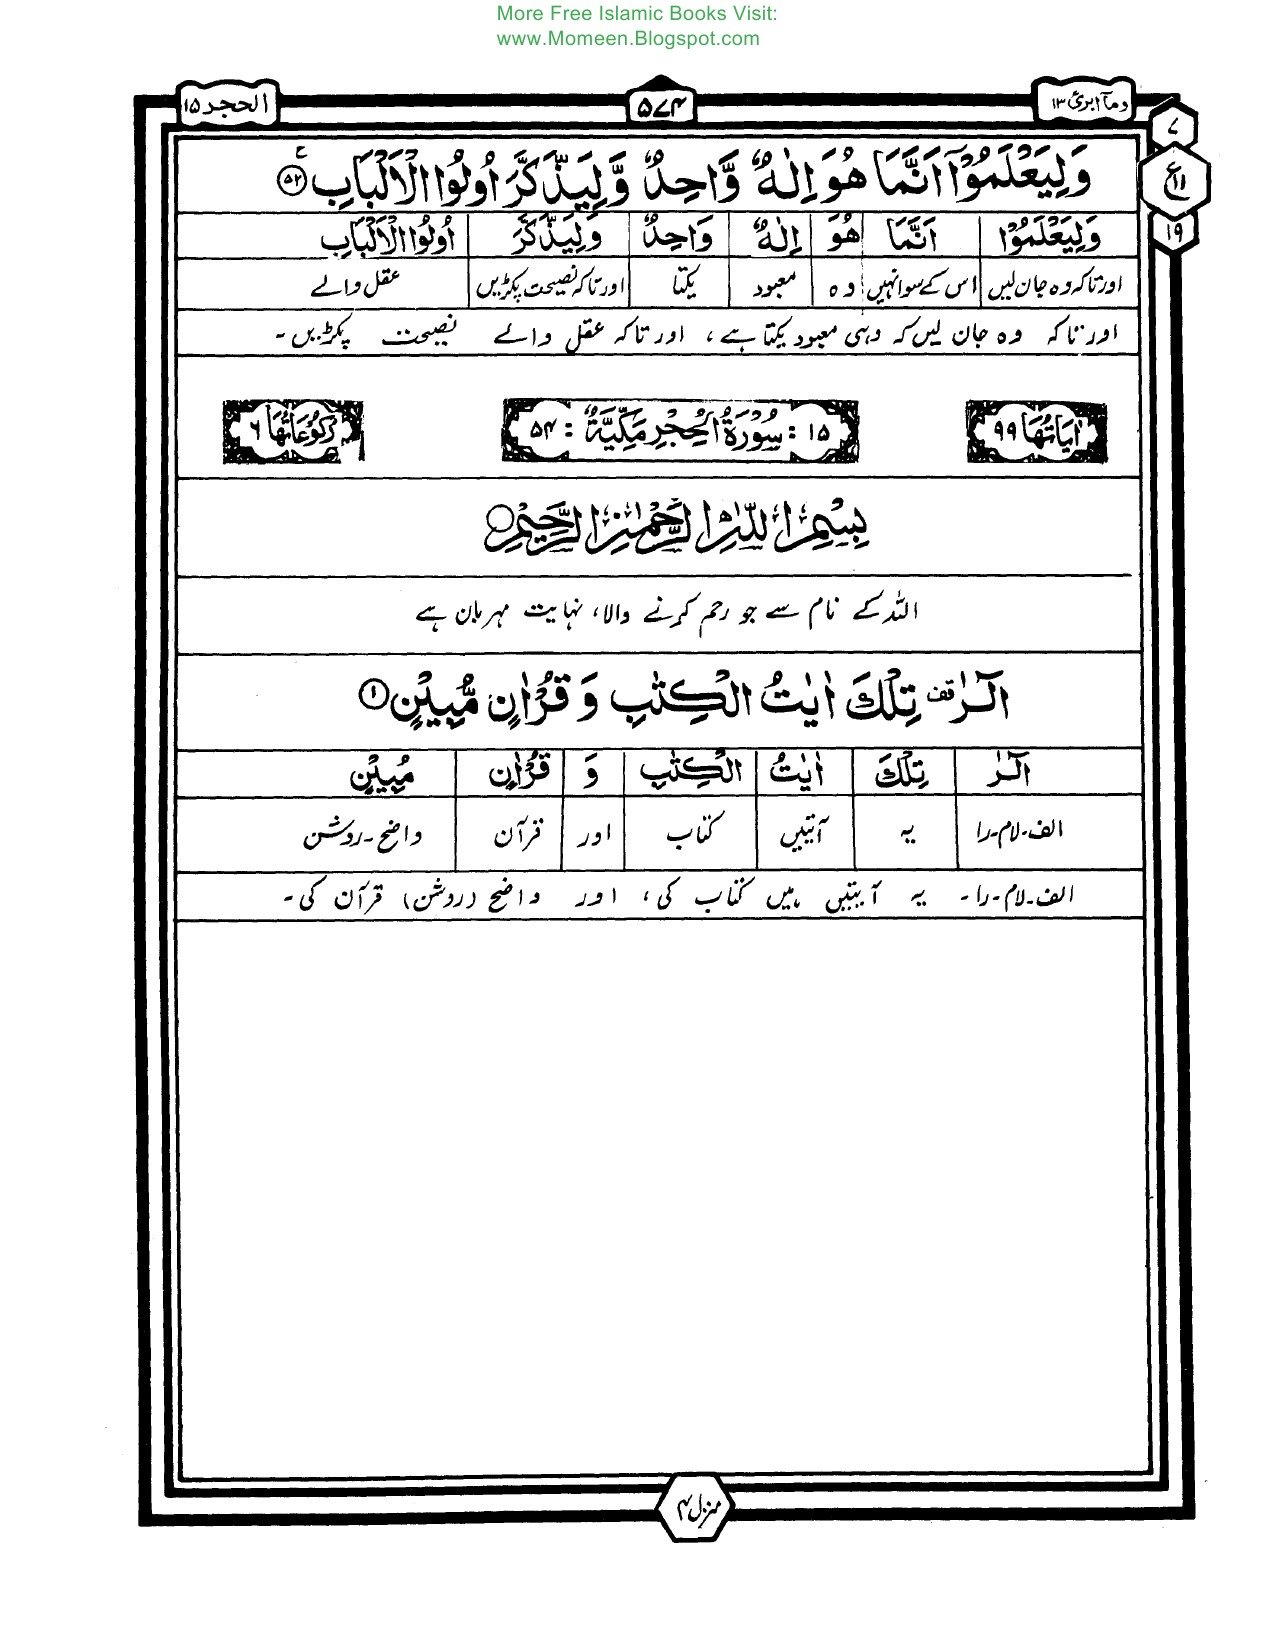 More Free Islamic Books Visit:
www.Momeen.Blogspot.com
ومآ ابرئ ۱۳ ۵۷۴ الحجر ۱۵
۷
ع ۱۱
۱۹
وَلِيَعْلَمُوْٓا اَنَّمَا هُوَ اِلٰهٌ وَّاحِدٌ وَّلِيَذَّكَّرَ اُولُوا الْاَلْبَابِ ۵۲ ع
وَلِيَعْلَمُوْٓا اَنَّمَا هُوَ اِلٰهٌ وَّاحِدٌ وَّلِيَذَّكَّرَ اُولُوا الْاَلْبَابِ
اور تاکہ وہ جان لیں اس کے سوا نہیں وہ معبود یکتا اور تاکہ نصیحت پکڑیں عقل والے
اور تاکہ وہ جان لیں کہ وہی معبود یکتا ہے، اور تاکہ عقل والے نصیحت پکڑیں۔
اٰيَاتُهَا ۹۹ ۱۵: سُوْرَةُ الْحِجْرِ مَكِّيَّةٌ :۵۴ رُكُوْعَاتُهَا ۶
بِسْمِ اللّٰهِ الرَّحْمٰنِ الرَّحِيْمِ
اللہ کے نام سے جو رحم کرنے والا، نہایت مہربان ہے
الٓرٰ قف تِلْكَ اٰيٰتُ الْكِتٰبِ وَ قُرْاٰنٍ مُّبِيْنٍ ۱
الٓرٰ تِلْكَ اٰيٰتُ الْكِتٰبِ وَ قُرْاٰنٍ مُّبِيْنٍ
الف-لام-را یہ آیتیں کتاب اور قرآن واضح-روشن
الف-لام-را۔ یہ آیتیں ہیں کتاب کی، اور واضح (روشن) قرآن کی۔
منزل ۳